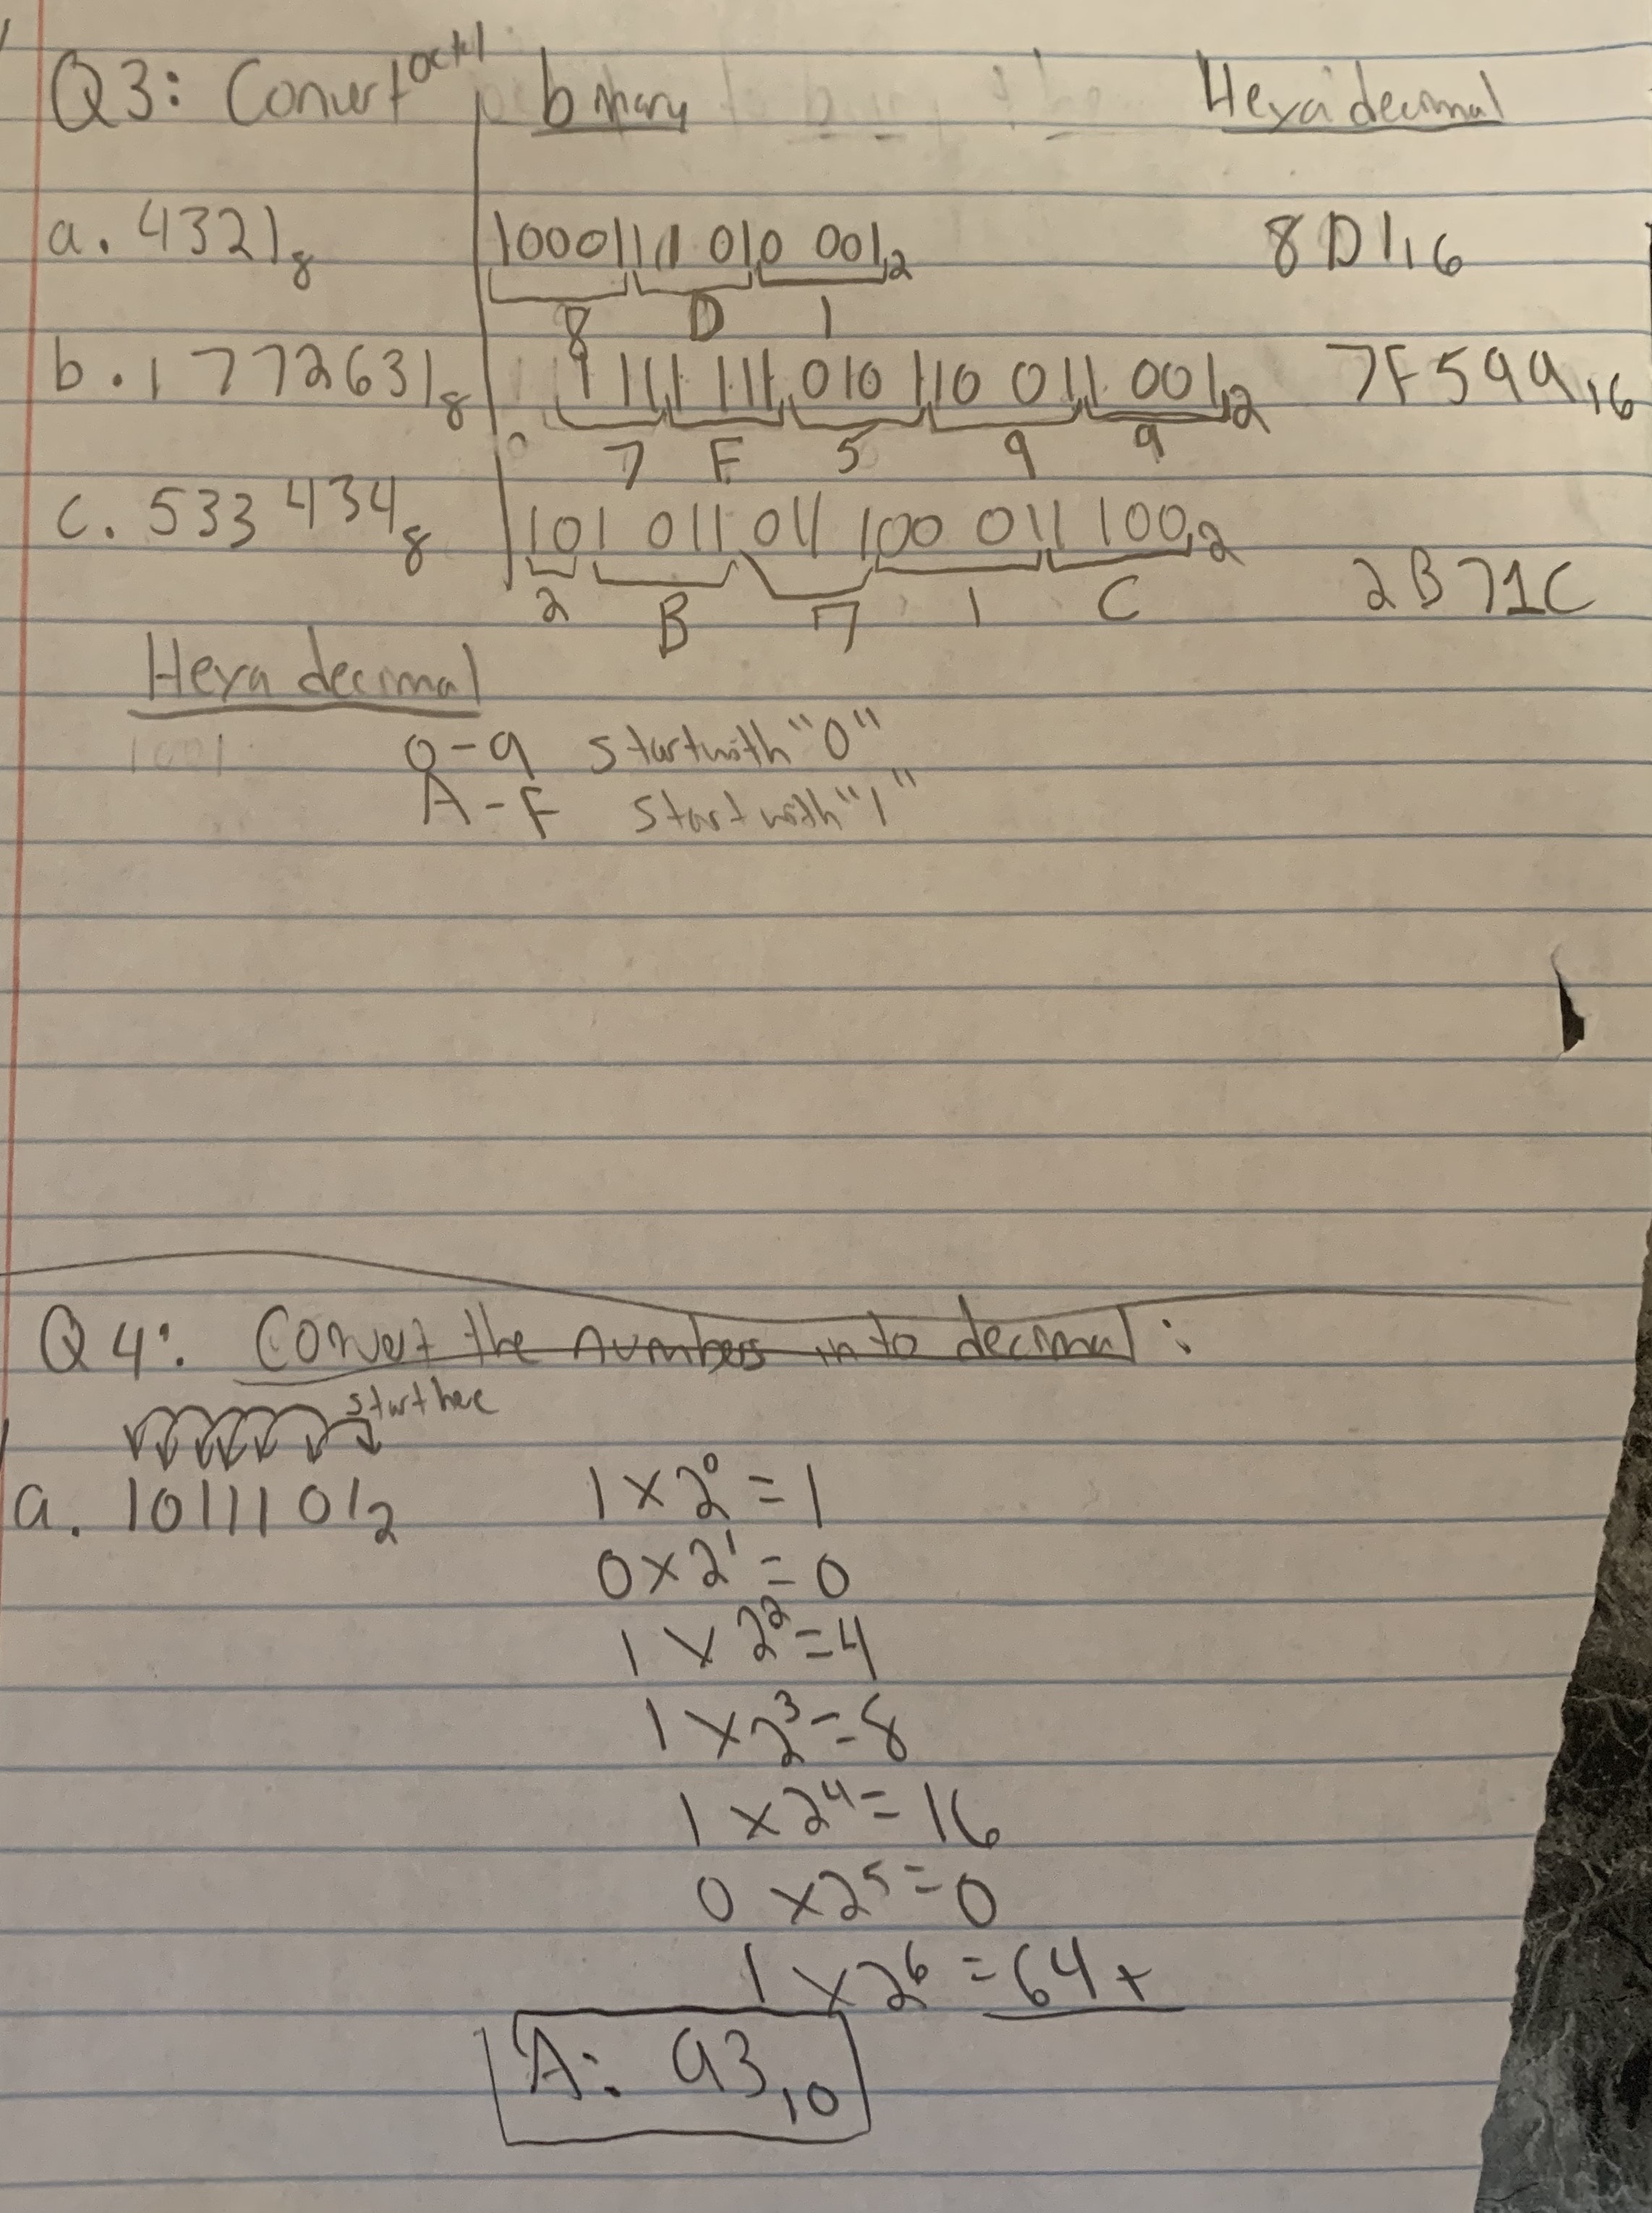 Q3: Convert octal binary Hexadecimal
a. 4321₈ 100011 11 010 001₂ 8D1₁₆
8 D 1
b. 1772631₈ 1 111 111 010 110 011 001₂ 7F599₁₆
7 F 5 9 9
c. 533434₈ 101 011 011 100 011 100₂ 2B71C
2 B 7 1 C
Hexa decimal
1001
0-9 start with "0"
A-F start with "1"
Q4: Convert the numbers into decimal:
start here
a. 1011101₂ 1 × 2⁰ = 1
0 × 2¹ = 0
1 × 2² = 4
1 × 2³ = 8
1 × 2⁴ = 16
0 × 2⁵ = 0
1 × 2⁶ = 64 +
A: 93₁₀